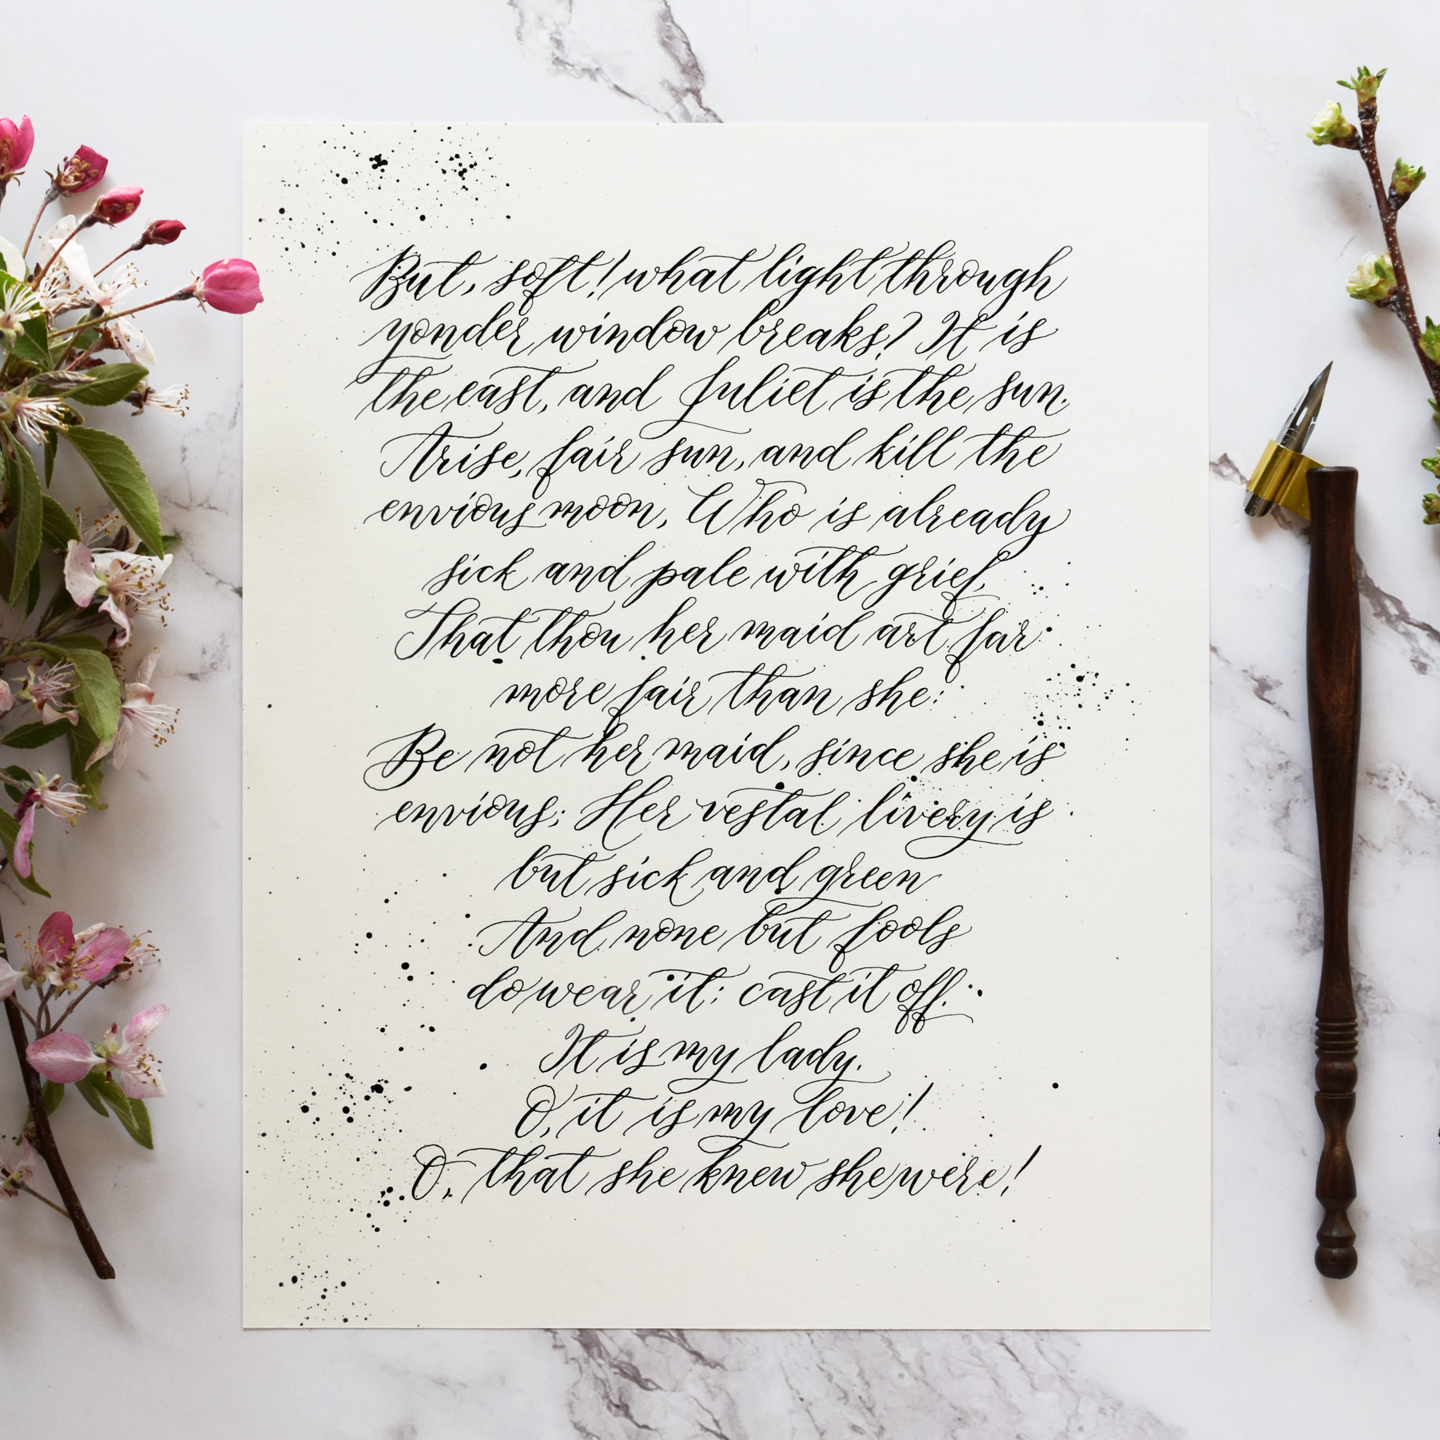 But, soft! what light through
yonder window breaks? It is
the east, and Juliet is the sun.
Arise, fair sun, and kill the
envious moon, Who is already
sick and pale with grief,
That thou her maid art far
more fair than she:
Be not her maid, since she is
envious; Her vestal livery is
but sick and green
And none but fools
do wear it: cast it off.
It is my lady.
O, it is my love!
O, that she knew she were!